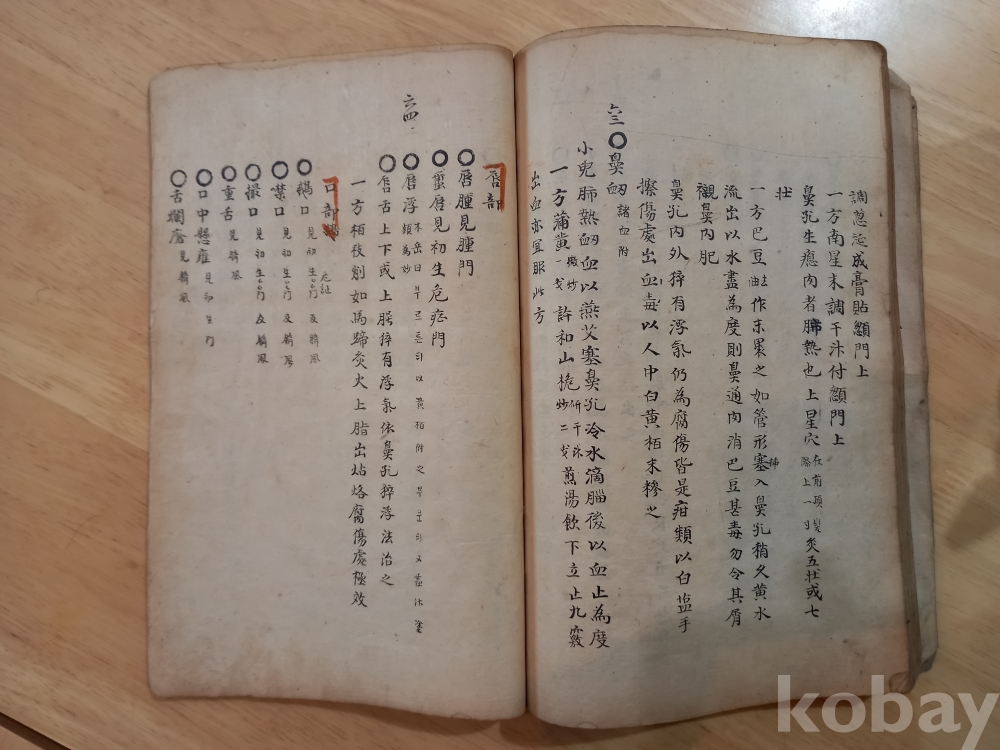 調葱涎成膏貼顖門上
一方南星末調干汁付顖門上
鼻孔生瘜肉者肺熱也上星穴在前項髮際上一寸灸五壯或七
壯
一方巴豆去油作末裹之如管形塞入鼻孔稍久黃水
流出以水盡為度則鼻通肉消巴豆甚毒勿令其屑
襯鼻內肥
鼻孔內外猝有浮氣仍為腐傷皆是疳類以白鹽手
擦傷處出血毒以人中白黃栢末糝之
六三
鼻衂諸血附
小兒肺熱衂血以燕艾塞鼻孔冷水滴腦後以血止為度
一方蒲黃一戔微炒許和山梔研干洙炒二戔煎湯飲下立止九竅
出血亦宜服此方
六四
唇部
唇腫見腫門
蠒唇見初生危症門
唇浮
唇舌上下或上腭猝有浮氣依鼻孔猝浮法治之
一方栢枝削如馬蹄灸火上脂出點烙腐傷處極效
口部
鵝口見初生門及臍風
噤口見初生門及臍風
撮口見初生門及臍風
重舌見臍風
口中懸癰見初生門
舌爛瘡見臍風
kobay